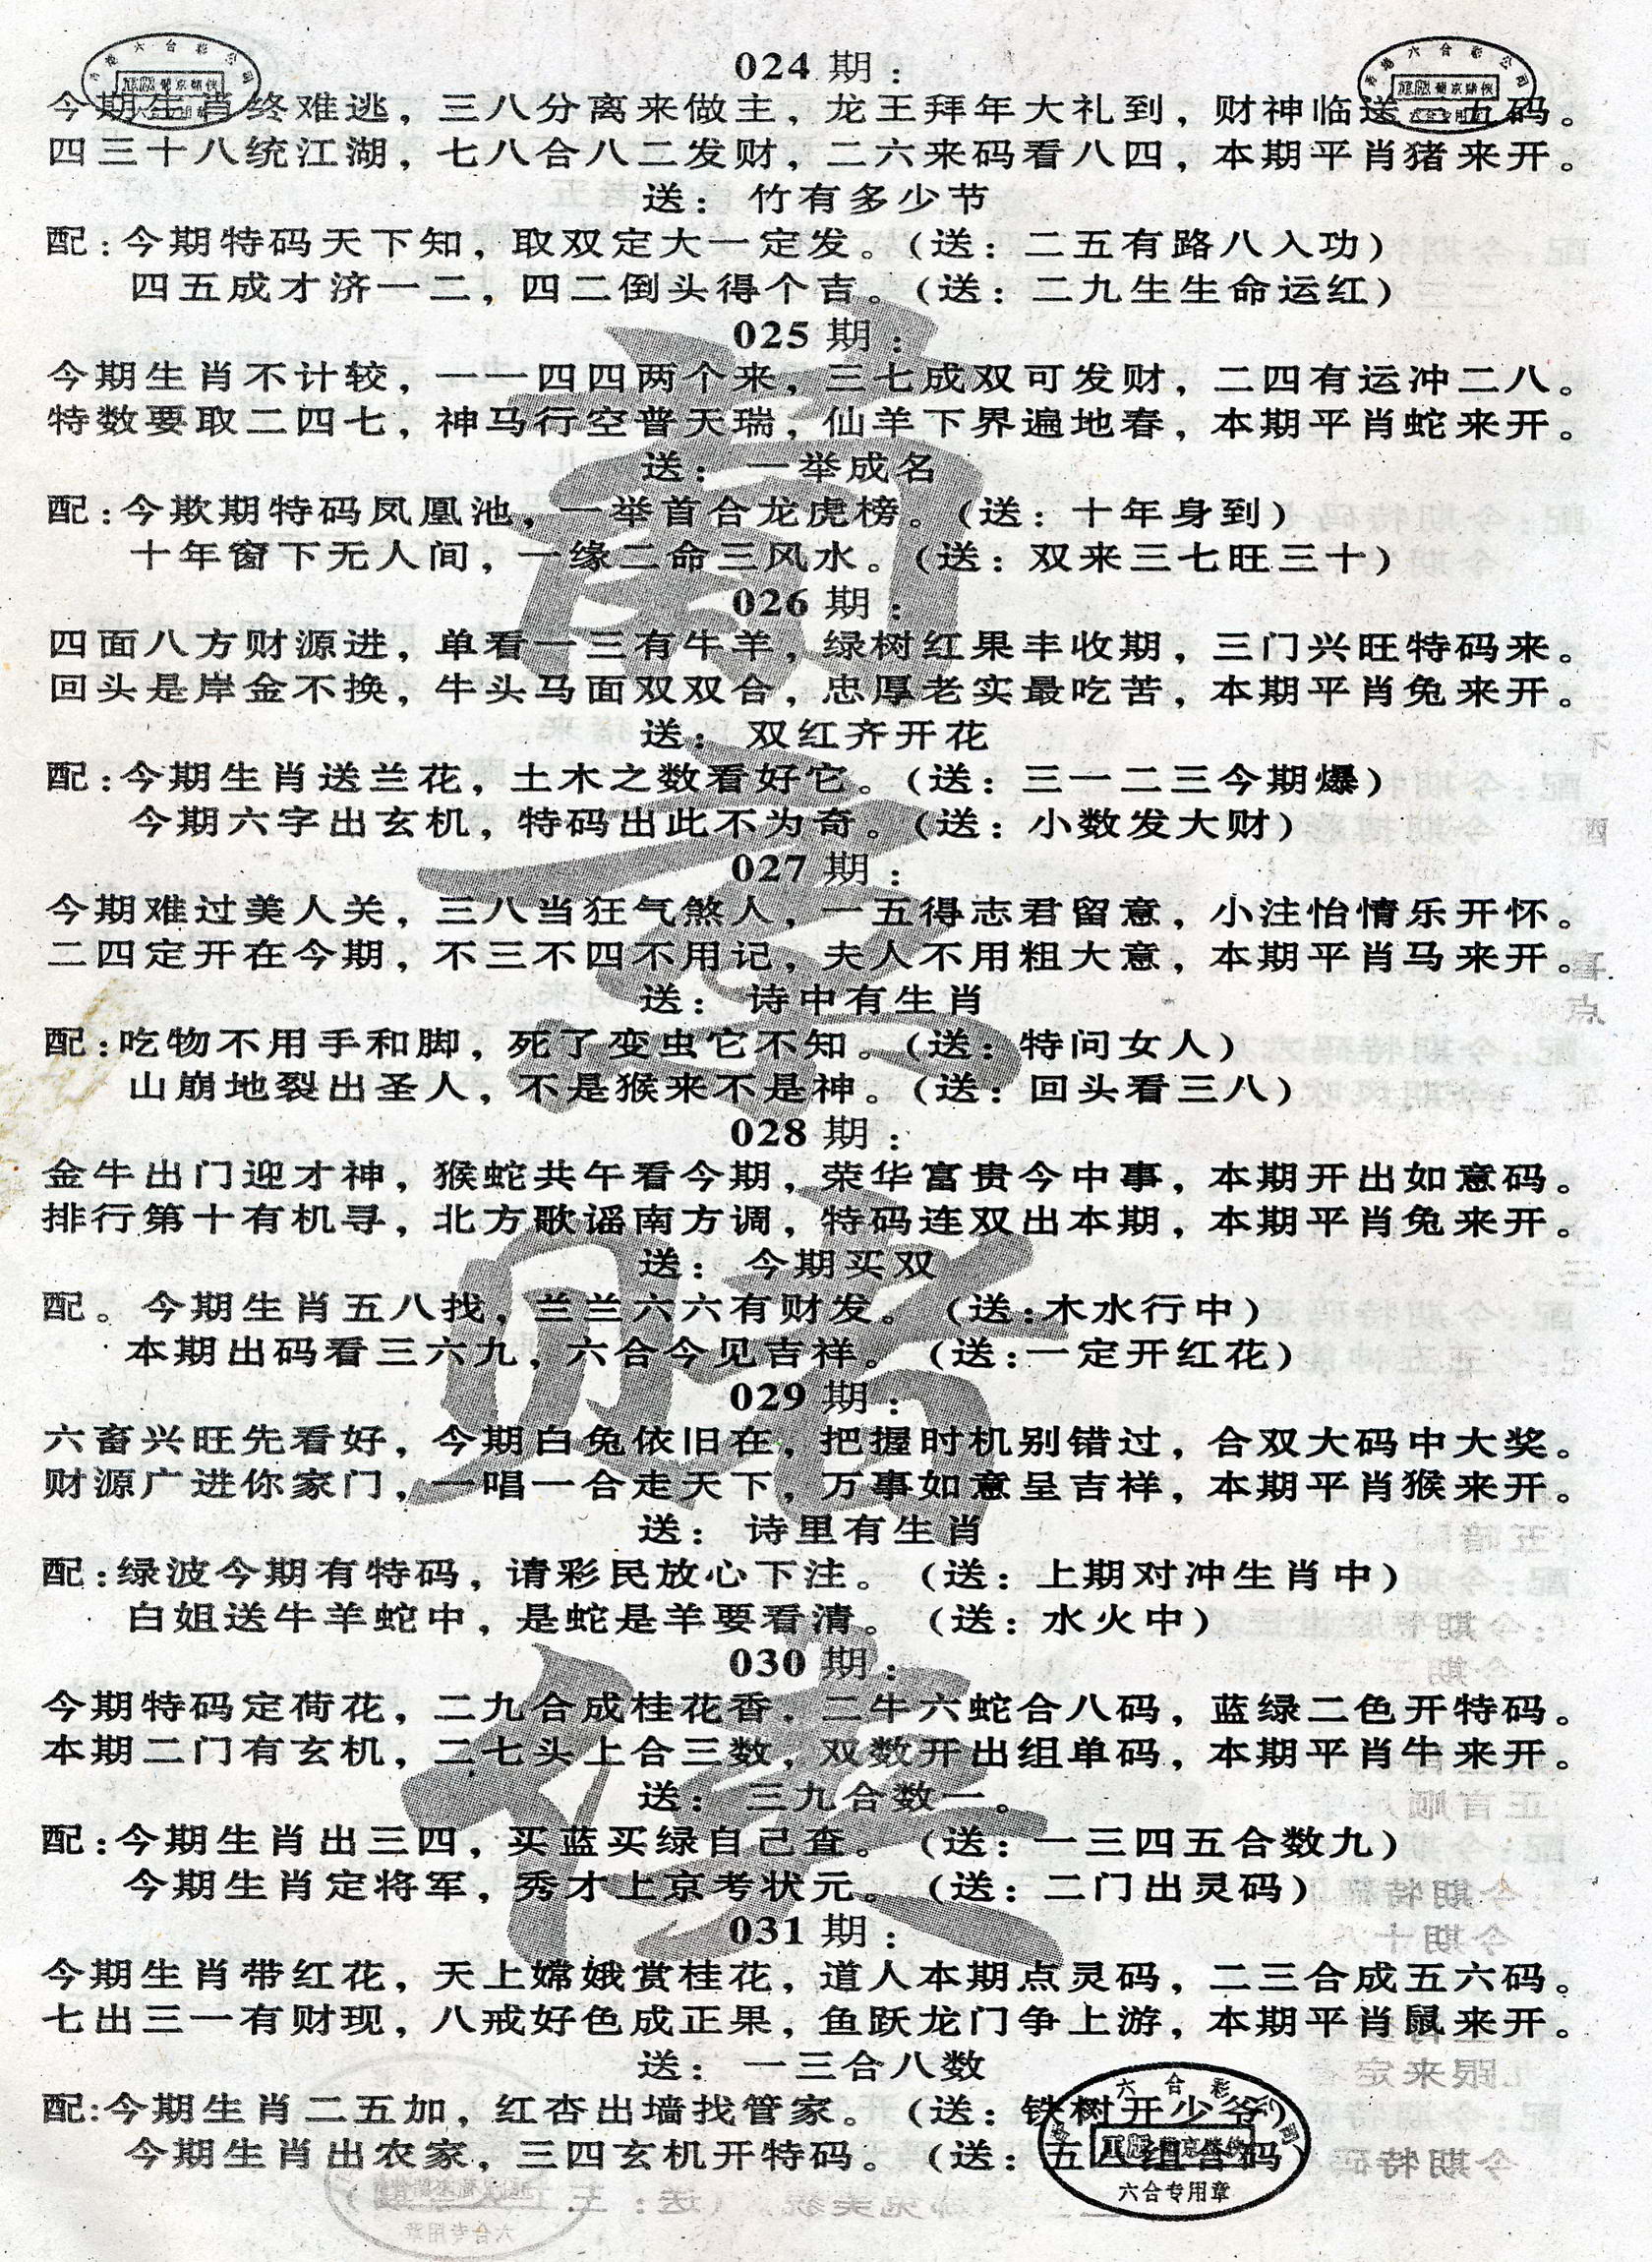 024期：
今期生肖终难逃，三八分离来做主，龙王拜年大礼到，财神临送二五码。
四三十八统江湖，七八合八二发财，二六来码看八四，本期平肖猪来开。
送：竹有多少节
配:今期特码天下知，取双定大一定发。（送：二五有路八入功）
四五成才济一二，四二倒头得个吉。（送：二九生生命运红）
025期：
今期生肖不计较，一一四四两个来，三七成双可发财，二四有运冲二八。
特数要取二四七，神马行空普天瑞，仙羊下界遍地春，本期平肖蛇来开。
送：一举成名
配:今欺期特码凤凰池，一举首合龙虎榜。（送：十年身到）
十年窗下无人间，一缘二命三风水。（送：双来三七旺三十）
026期：
四面八方财源进，单看一三有牛羊，绿树红果丰收期，三门兴旺特码来。
回头是岸金不换，牛头马面双双合，忠厚老实最吃苦，本期平肖兔来开。
送：双红齐开花
配:今期生肖送兰花，土木之数看好它。（送：三一二三今期爆）
今期六字出玄机，特码出此不为奇。（送：小数发大财）
027期：
今期难过美人关，三八当狂气煞人，一五得志君留意，小注怡情乐开怀。
二四定开在今期，不三不四不用记，夫人不用粗大意，本期平肖马来开。
送：诗中有生肖
配:吃物不用手和脚，死了变虫它不知。（送：特问女人）
山崩地裂出圣人，不是猴来不是神。（送：回头看三八）
028期：
金牛出门迎才神，猴蛇共午看今期，荣华富贵今中事，本期开出如意码。
排行第十有机寻，北方歌谣南方调，特码连双出本期，本期平肖兔来开。
送：今期买双
配。今期生肖五八找，兰兰六六有财发。（送:木水行中）
本期出码看三六九，六合今见吉祥。（送:一定开红花）
029期：
六畜兴旺先看好，今期白兔依旧在，把握时机别错过，合双大码中大奖。
财源广进你家门，一唱一合走天下，万事如意呈吉祥，本期平肖猴来开。
送：诗里有生肖
配:绿波今期有特码，请彩民放心下注。（送：上期对冲生肖中）
白姐送牛羊蛇中，是蛇是羊要看清。（送：水火中）
030期：
今期特码定荷花，二九合成桂花香，二牛六蛇合八码，蓝绿二色开特码。
本期二门有玄机，二七头上合三数，双数开出组单码，本期平肖牛来开。
送：三九合数一。
配:今期生肖出三四，买蓝买绿自己查。（送：一三四五合数九）
今期生肖定将军，秀才上京考状元。（送：二门出灵码）
031期：
今期生肖带红花，天上嫦娥赏桂花，道人本期点灵码，二三合成五六码。
七出三一有财现，八戒好色成正果，鱼跃龙门争上游，本期平肖鼠来开。
送：一三合八数
配:今期生肖二五加，红杏出墙找管家。（送：铁树开少爷）
今期生肖出农家，三四玄机开特码。（送：五八组合码）
六合专用章